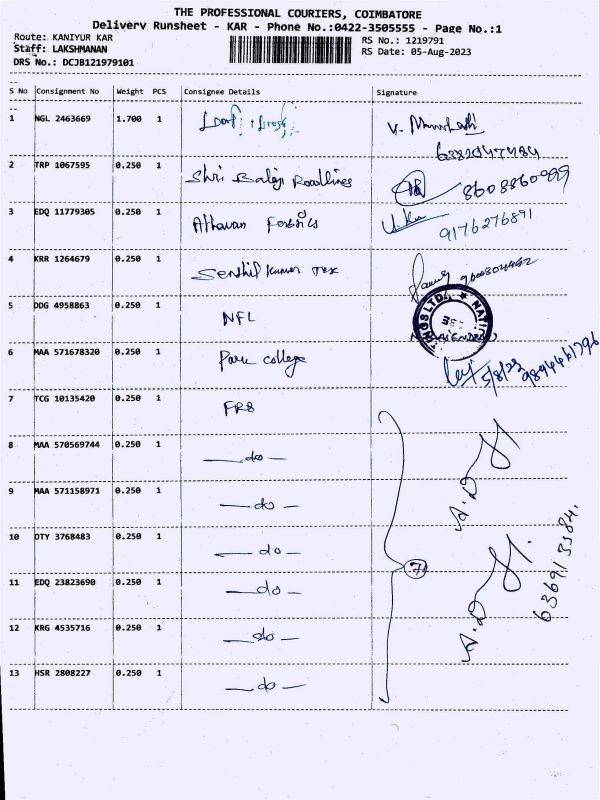 THE PROFESSIONAL COURIERS, COIMBATORE
Delivery Runsheet - KAR - Phone No.:0422-3505555 - Page No.:1
Route: KANIYUR KAR
RS No.: 1219791
Staff: LAKSHMANAN
RS Date: 05-Aug-2023
DRS No.: DCJB121979101
S No Consignment No Weight PCS Consignee Details Signature
1 NGL 2463669 1.700 1
6382047484
2 TRP 1067595 0.250 1 Shri Balaji Roadlines 8608860099
3 EDQ 11779305 0.250 1 Athavan Fabrics 9176276891
4 KRR 1264679 0.250 1 Senthil Kumar Tex
5 DDG 4958863 0.250 1 NFL
6 MAA 571678320 0.250 1 Park college 5/8/23
7 TCG 10135420 0.250 1 FR8
8 MAA 570569744 0.250 1 —do—
9 MAA 571158971 0.250 1 —do—
10 OTY 3768483 0.250 1 —do—
7
11 EDQ 23823690 0.250 1 —do—
12 KRG 4535716 0.250 1 —do—
13 HSR 2808227 0.250 1 —do—